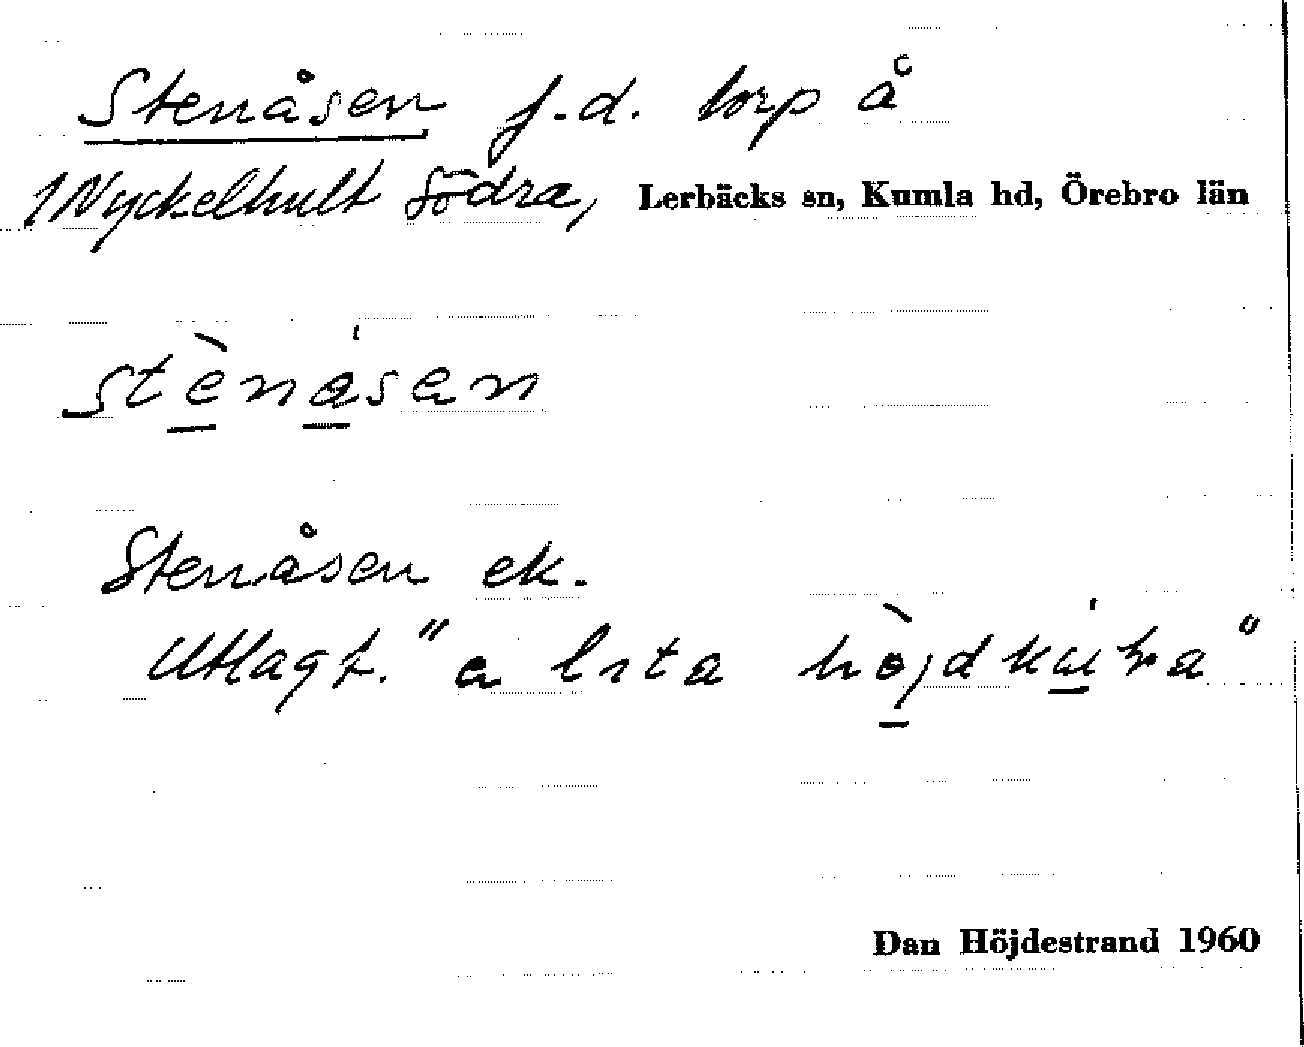 Stenåsen f.d. torp å
1 Nyckelhult Södra, Lerbäcks sn, Kumla hd, Örebro län
stènåsan
Stenåsen ek.
Utlagt. "a lita höjdkula"
Dan Höjdestrand 1960